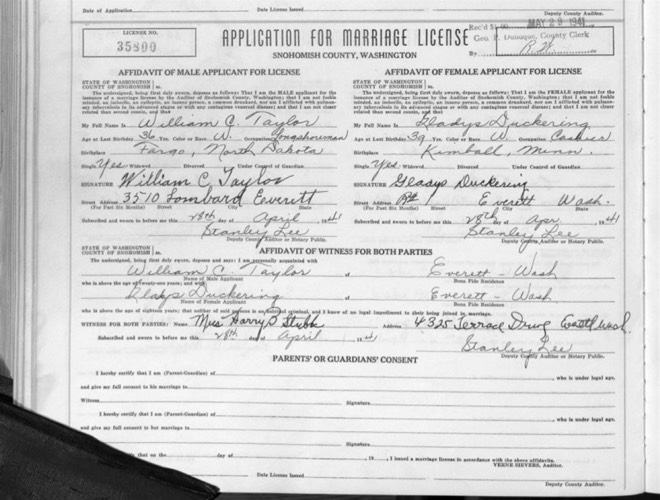 Date of Application Date License Issued
Deputy County Auditor.
LICENSE NO.
35800
APPLICATION FOR MARRIAGE LICENSE
SNOHOMISH COUNTY, WASHINGTON
Rec'd $1.00 MAY 29 1941
Geo. F. Dubuque, County Clerk
By R.W.
AFFIDAVIT OF MALE APPLICANT FOR LICENSE
STATE OF WASHINGTON
COUNTY OF SNOHOMISH ss
The undersigned, being first duly sworn, deposes as follows: That I am the MALE applicant for the
issuance of a marriage license by the Auditor of Snohomish County, Washington; that I am not feeble
minded, an imbecile, an epileptic, an insane person, a common drunkard, nor am I afflicted with pulmon-
ary tuberculosis in its advanced stages or with any contagious venereal disease; and that I am not closer
related than second cousin, and that
My Full Name is William C Taylor
Age at Last Birthday 36 Yrs. Color or Race W. Occupation Longshoreman
Birthplace Fargo, North Dakota
Single Yes Widowed Divorced Under Control of Guardian
SIGNATURE William C Taylor
Street Address 3510 Lombard Everitt
(For Past Six Months) Street City State
Subscribed and sworn to before me this 28th day of April 1941
Stanley Lee
Deputy County Auditor or Notary Public.
AFFIDAVIT OF FEMALE APPLICANT FOR LICENSE
STATE OF WASHINGTON
COUNTY OF SNOHOMISH ss
The undersigned, being first duly sworn, deposes as follows: That I am the FEMALE applicant for the
issuance of a marriage license by the Auditor of Snohomish County, Washington; that I am not feeble
minded, an imbecile, an epileptic, an insane person, a common drunkard, nor am I afflicted with pulmon-
ary tuberculosis in its advanced stages or with any contagious venereal disease; and that I am not closer
related than second cousin, and that
My Full Name is Gladys Duckering
Age at Last Birthday 39 Yrs. Color or Race W. Occupation Cashier
Birthplace Kimball, Minn.
Single Yes Widowed Divorced Under Control of Guardian
SIGNATURE Gladys Duckering
Street Address Everett Wash.
(For Past Six Months) Street City State
Subscribed and sworn to before me this 28th day of Apr 1941
Stanley Lee
Deputy County Auditor or Notary Public.
AFFIDAVIT OF WITNESS FOR BOTH PARTIES
STATE OF WASHINGTON
COUNTY OF SNOHOMISH ss
The undersigned, being first duly sworn, deposes and says: I am personally acquainted with
William C. Taylor of Everett - Wash
Name of Male Applicant Bona Fide Residence
who is above the age of twenty-one years; and with
Gladys Duckering of Everett - Wash
Name of Female Applicant Bona Fide Residence
who is above the age of eighteen years; that neither of said persons is an habitual criminal, and I know of no legal impediment to their being joined in marriage.
WITNESS FOR BOTH PARTIES: Name Mrs Harry D Address 4325 Terrace Drive Wash.
Subscribed and sworn to before me this 28th day of April 1941
Stanley Lee
Deputy County Auditor or Notary Public.
PARENTS' OR GUARDIANS' CONSENT
I hereby certify that I am (Parent-Guardian) of , who is under legal age,
and give my full consent to his marriage to
Witness Signature
I hereby certify that I am (Parent-Guardian) of , who is under legal age,
and give my full consent to her marriage to
Signature
that on the day of 19 , I issued a marriage license in accordance with the above affidavits.
VERNE SIEVERS, Auditor.
Date License Issued
Deputy County Auditor.